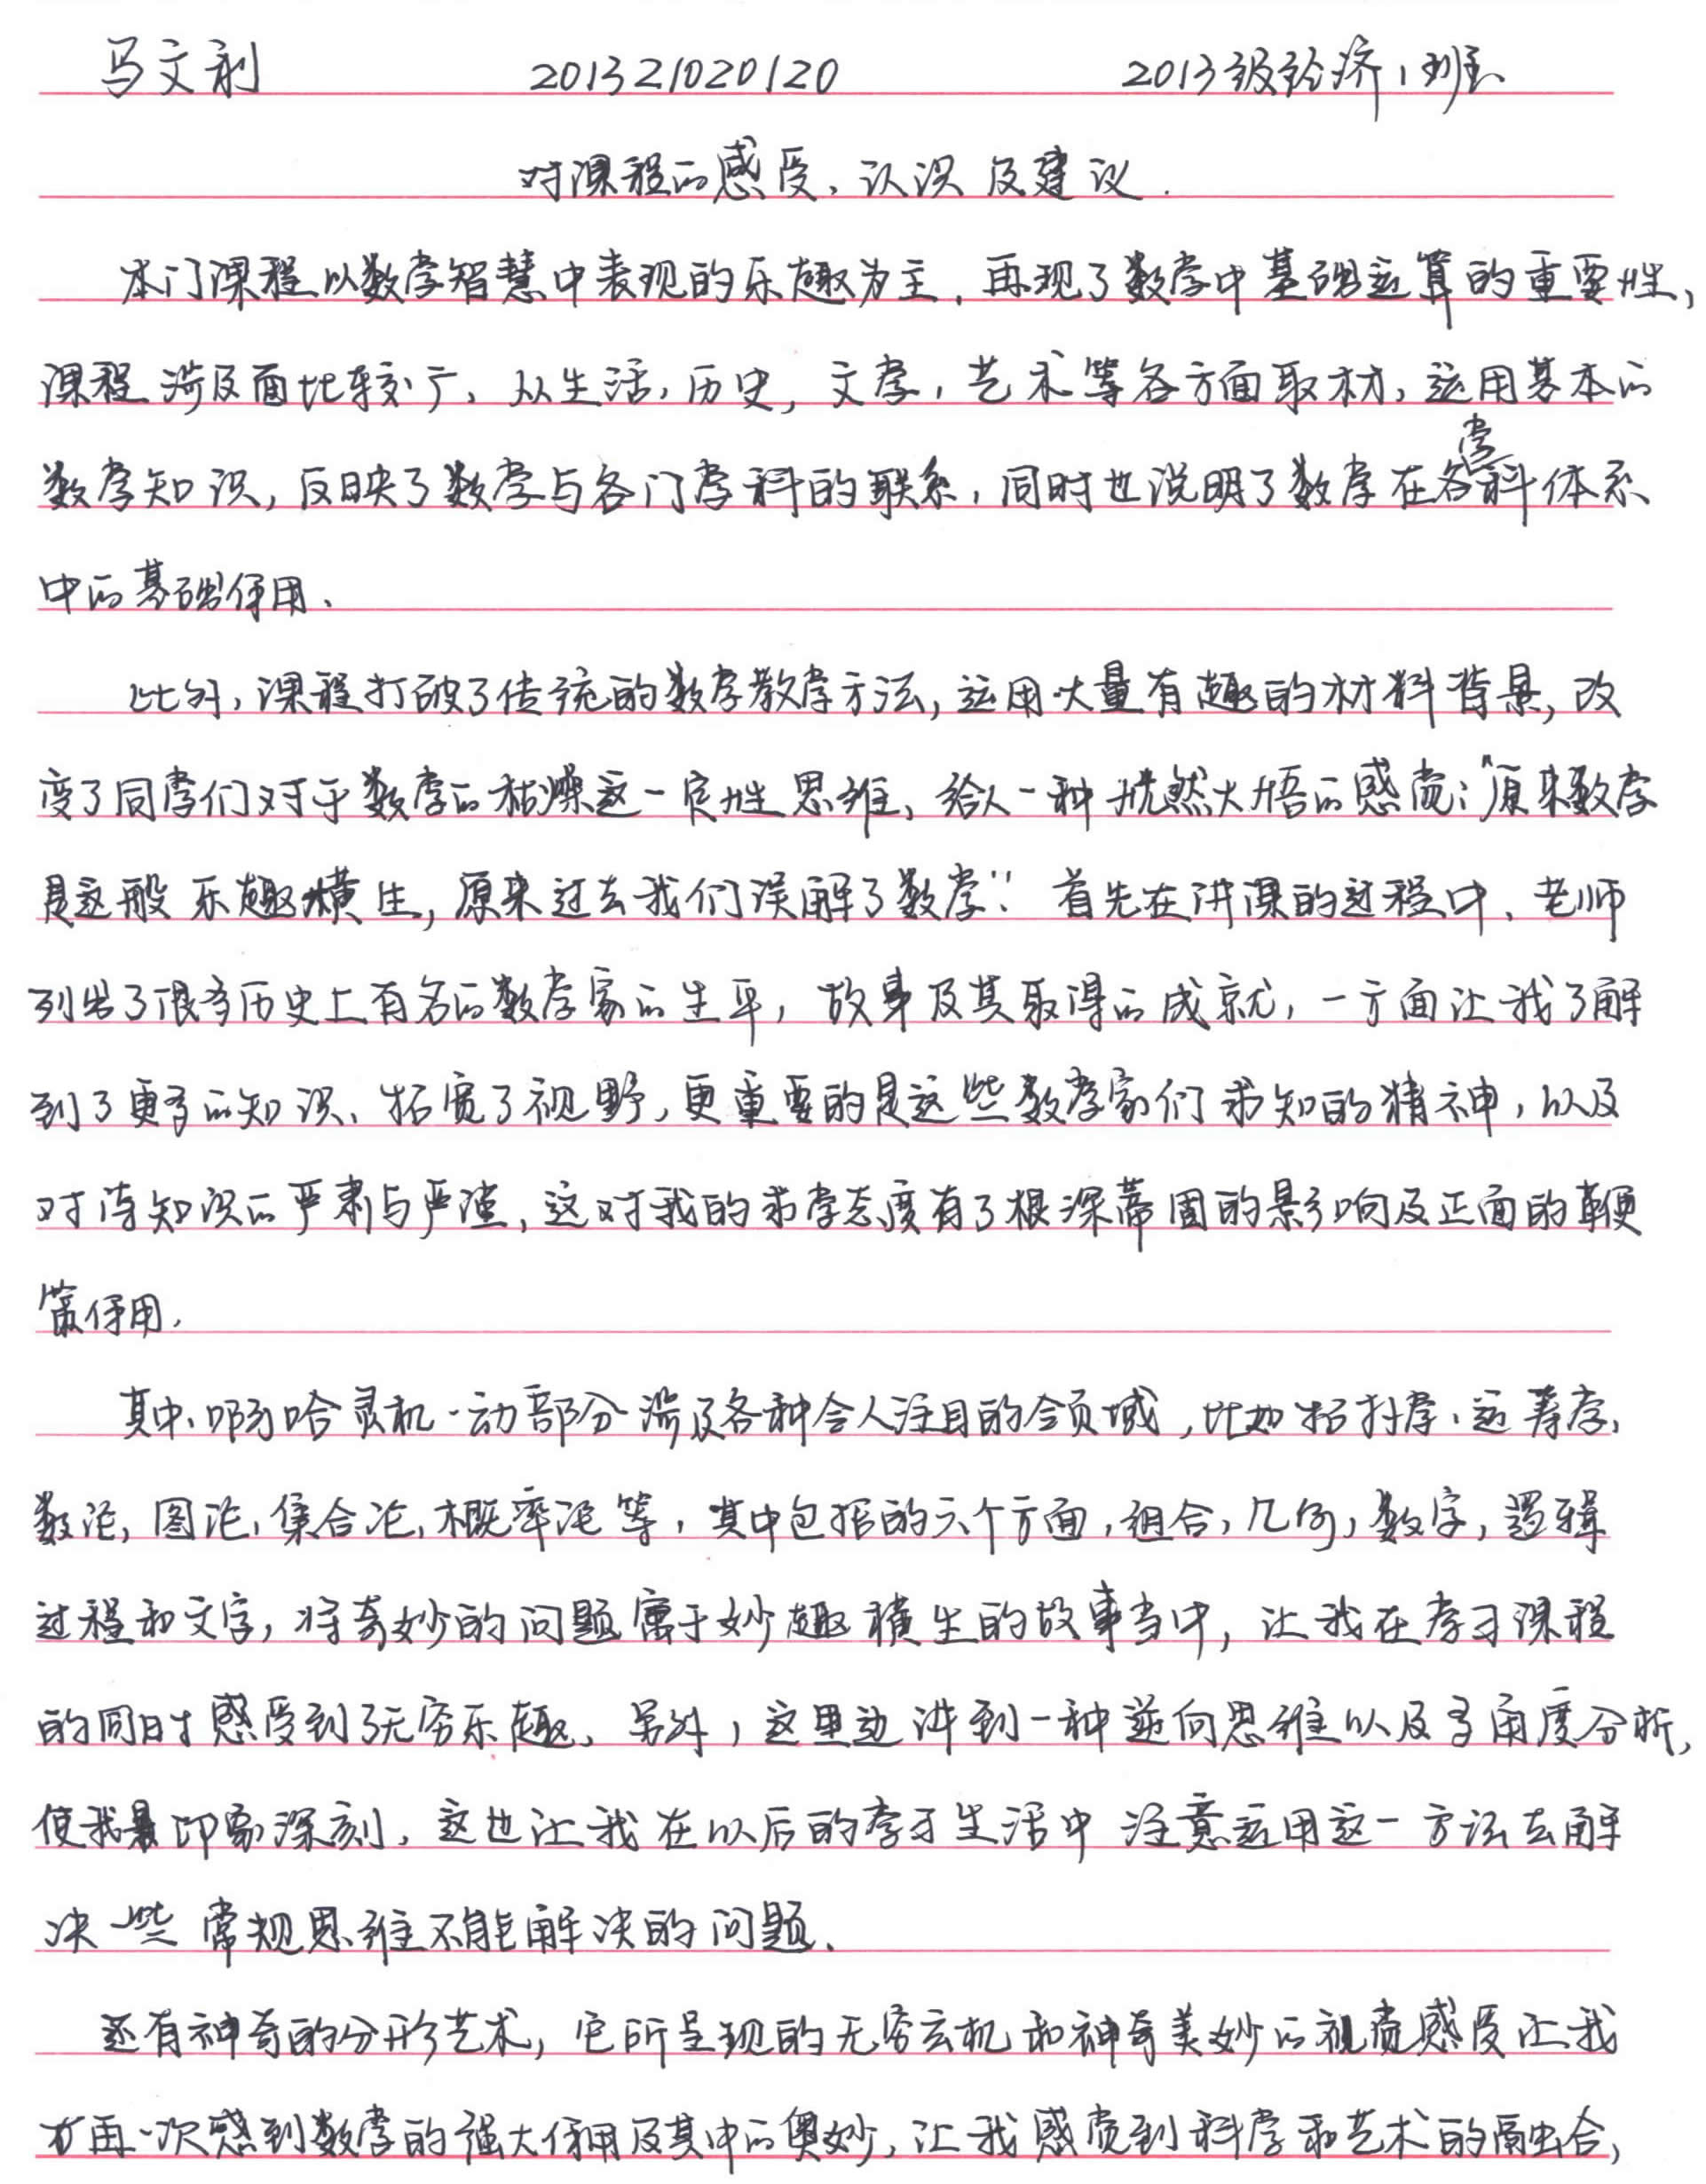 马文利 201321020120 2013级经济1班
对课程的感受、认识及建议.
本门课程以数学智慧中表现的乐趣为主，再现了数学中基础运算的重要性，
课程涉及面比较广，从生活，历史，文学，艺术等各方面取材，运用基本的
数学知识，反映了数学与各门学科的联系，同时也说明了数学在各学科体系
中的基础作用、
此外，课程打破了传统的数学教学方法，运用大量有趣的材料背景，改
变了同学们对于数学的枯燥这一定性思维，给人一种恍然大悟的感觉：“原来数学
是这般乐趣横生，原来过去我们误解了数学！” 首先在讲课的过程中、老师
列出了很多历史上有名的数学家的生平，故事及其取得的成就，一方面让我了解
到了更多的知识、拓宽了视野，更重要的是这些数学家们求知的精神，以及
对待知识的严肃与严谨，这对我的求学态度有了根深蒂固的影响及正面的鞭
策作用，
其中、啊哈灵机一动部分涉及各种令人注目的领域，比如拓扑学、运筹学，
数论，图论，集合论，概率论等，其中包括的六个方面，组合，几何，数字，逻辑
过程和文字，将奇妙的问题寓于妙趣横生的故事当中，让我在学习课程
的同时感受到了无穷乐趣、另外，这里边讲到一种逆向思维以及多角度分析，
使我最印象深刻，这也让我在以后的学习生活中注意运用这一方法去解
决一些常规思维不能解决的问题、
还有神奇的分形艺术，它所呈现的无穷玄机和神奇美妙的视觉感受让我
再一次感到数学的强大作用及其中的奥妙，让我感觉到科学和艺术的融合，